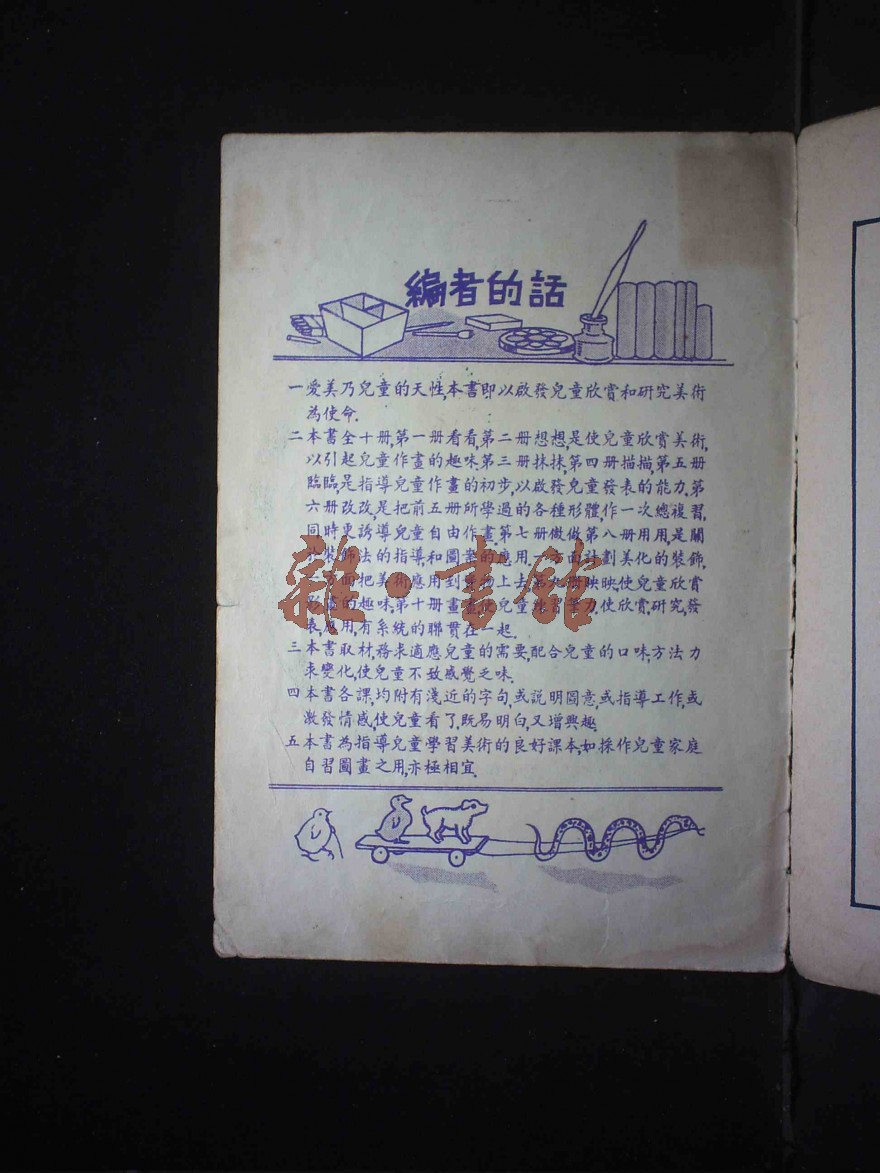 編者的話
一 愛美乃兒童的天性,本書即以啟發兒童欣賞和研究美術
為使命.
二 本書全十册,第一册看看,第二册想想,是使兒童欣賞美術,
以引起兒童作畫的趣味.第三册抹抹,第四册描描,第五册
臨臨,是指導兒童作畫的初步,以啟發兒童發表的能力.第
六册改改,是把前五册所學過的各種形體,作一次總複習,
同時更誘導兒童自由作畫.第七册做做,第八册用用,是關
於裝飾法的指導,和圖案的應用.一方面計劃美化的裝飾,
一方面把美術應用到實物上去.第九册映映,使兒童欣賞
影畫的趣味,第十册畫畫,使兒童練習筆力,使欣賞,研究,發
表,應用,有系統的聯貫在一起.
三 本書取材,務求適應兒童的需要,配合兒童的口味,方法力
求變化,使兒童不致感覺乏味.
四 本書各課,均附有淺近的字句,或説明圖意,或指導工作,或
激發情感,使兒童看了,既易明白,又增興趣.
五 本書為指導兒童學習美術的良好課本,如採作兒童家庭
自習圖畫之用,亦極相宜.
雜·書館